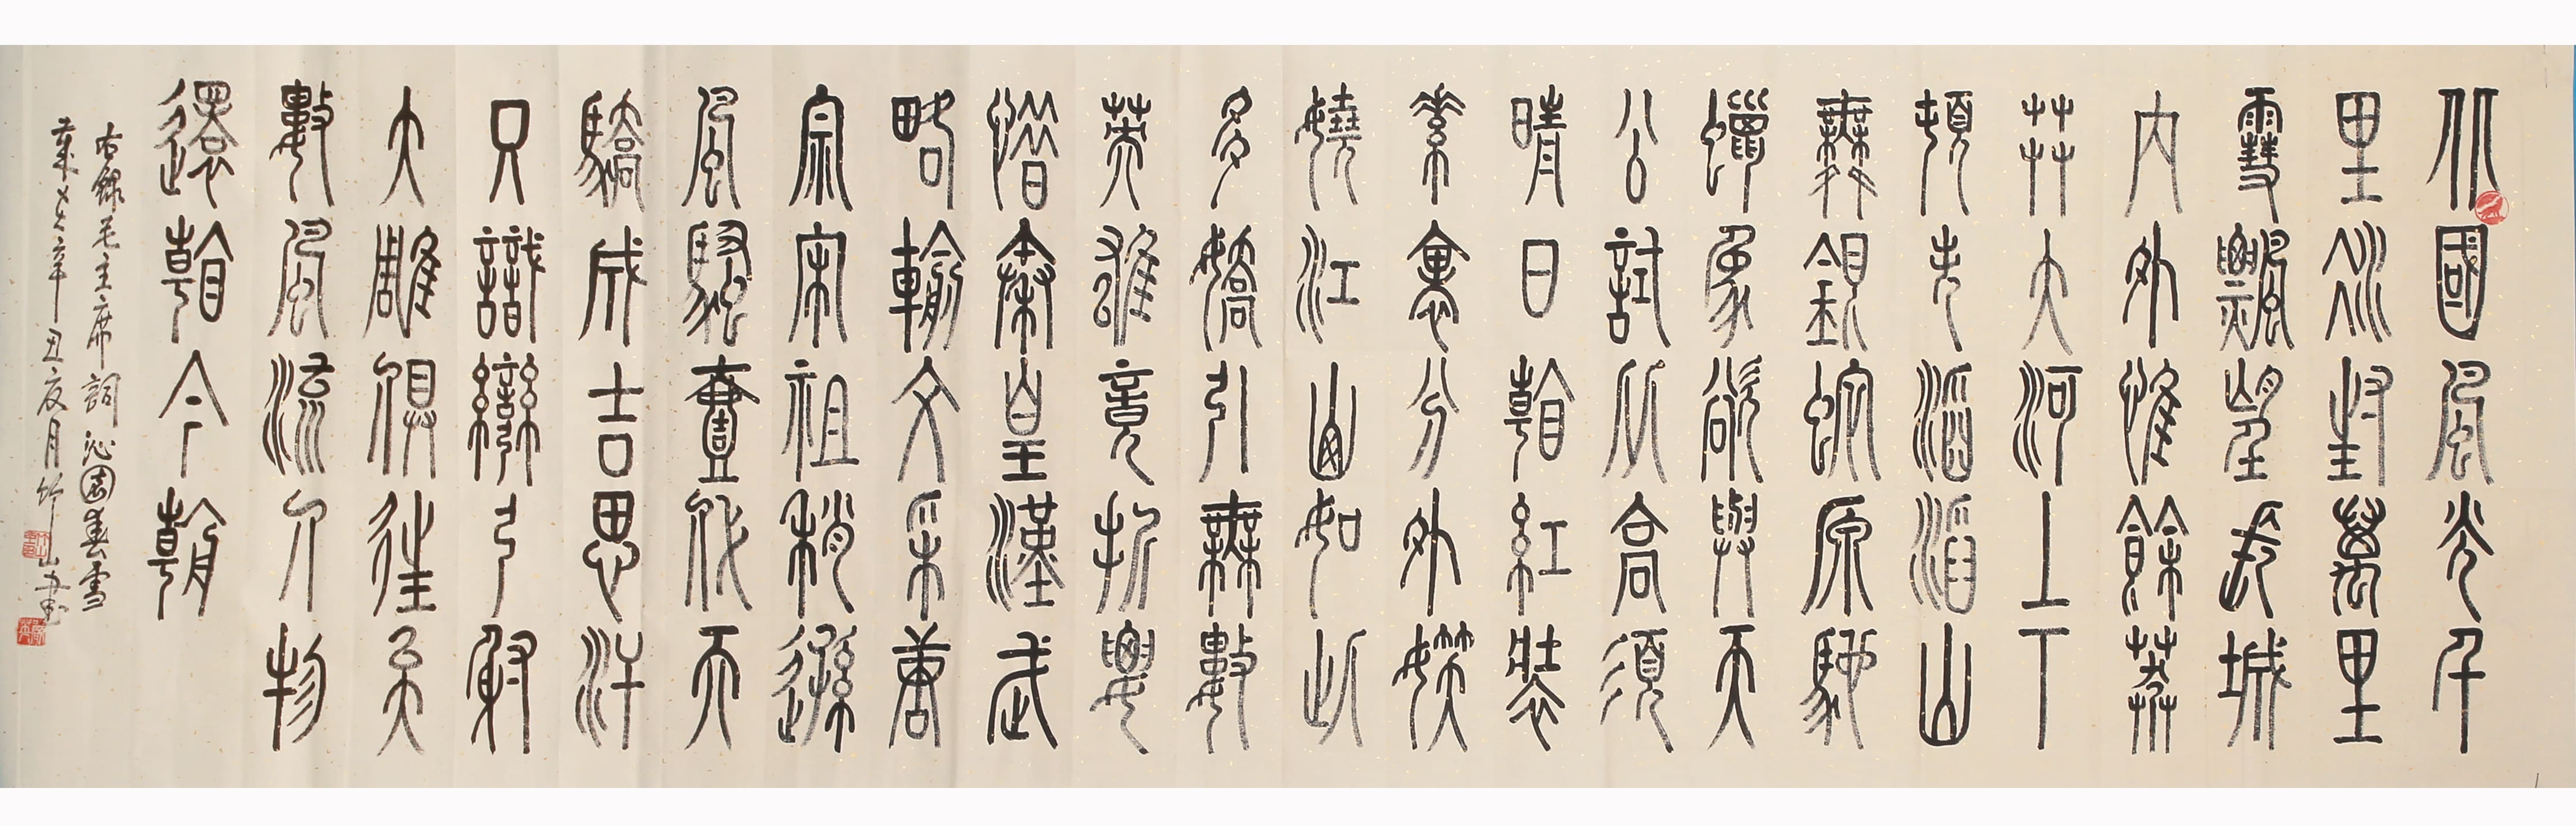 北國風光千
里冰封萬里
雪飄望長城
內外惟餘莽
莽大河上下
頓失滔滔山
舞銀蛇原馳
蠟象欲與天
公試比高須
晴日看紅裝
素裹分外妖
嬈江山如此
多嬌引無數
英雄競折腰
惜秦皇漢武
略輸文采唐
宗宋祖稍遜
風騷壹代天
驕成吉思汗
只識彎弓射
大雕俱往矣
數風流人物
還看今朝
右錄毛主席詞沁園春雪
歲次辛丑夏月竹山書